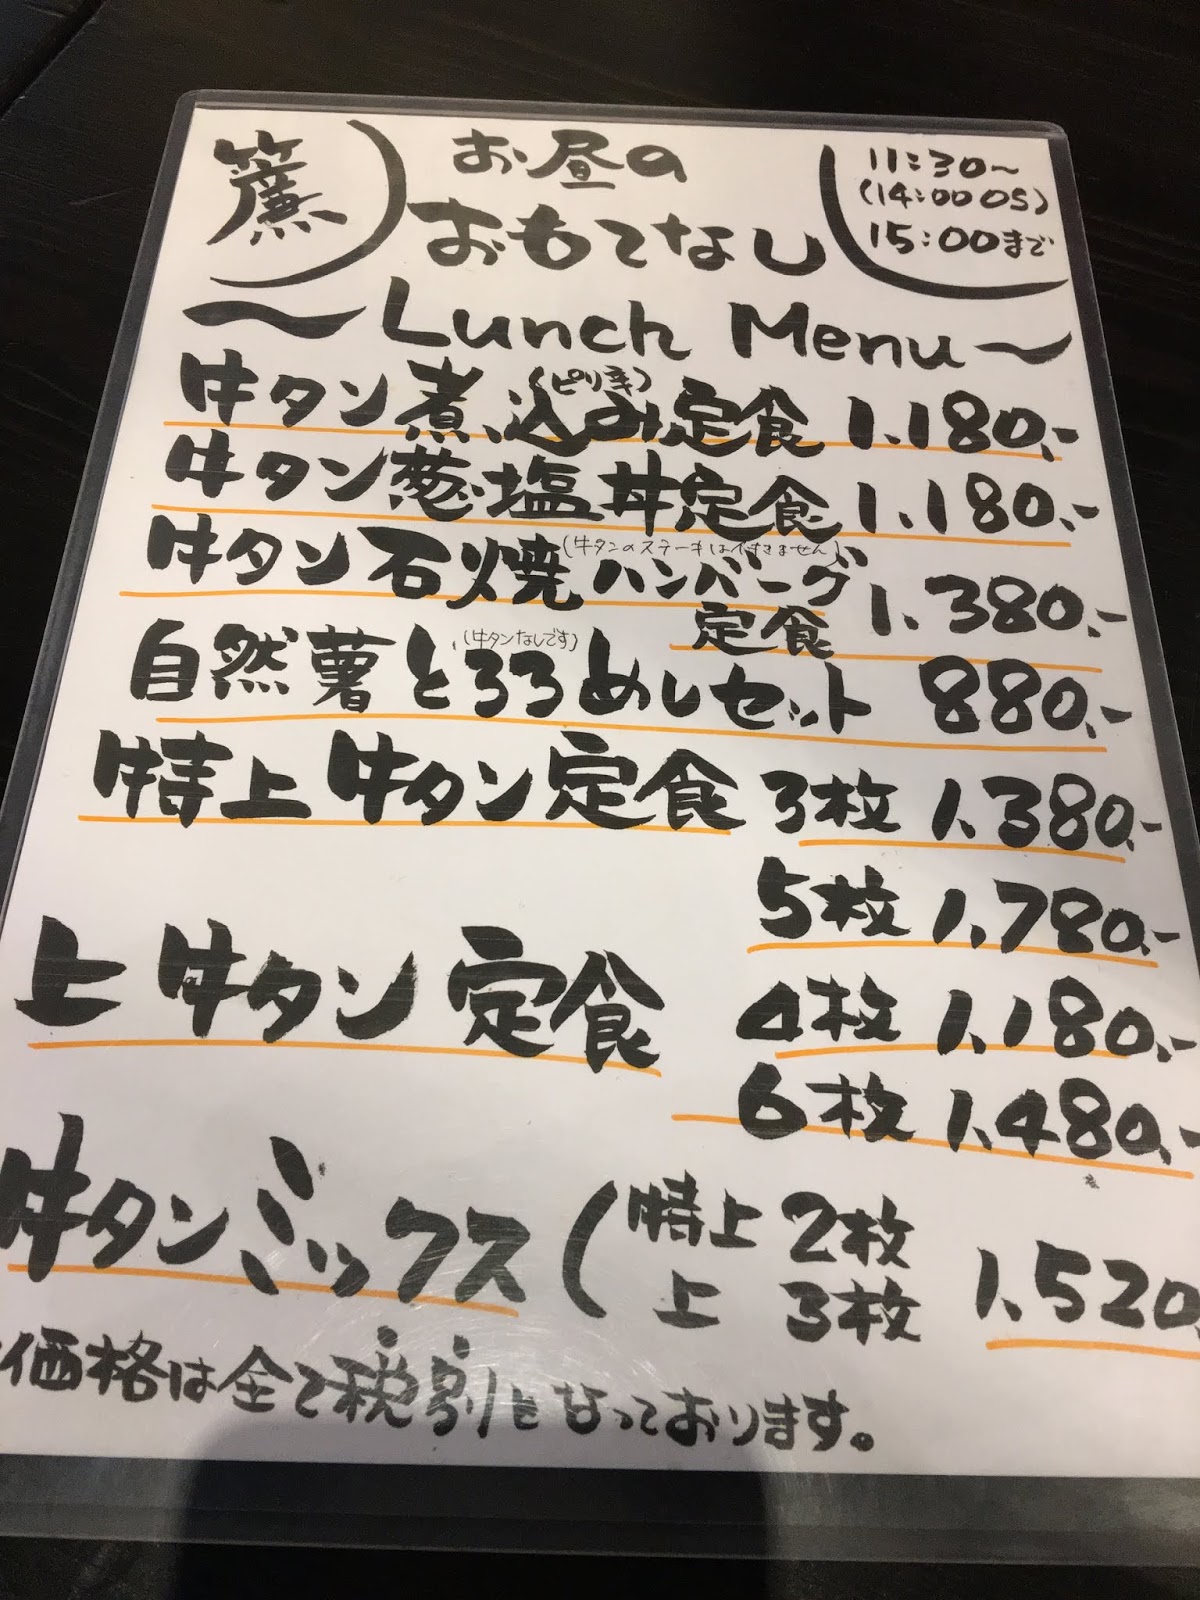 簾
お昼の
おもてなし
11:30〜
(14:00 OS)
15:00まで
〜Lunch Menu〜
牛タン煮込み定食 1,180,-
(ピリ辛)
牛タン葱塩丼定食 1,180,-
牛タン石焼ハンバーグ
定食 1,380,-
(牛タンのステーキは付きません)
自然薯とろろめしセット 880,-
(牛タンなしです)
特上牛タン定食 3枚 1,380,-
5枚 1,780,-
上牛タン定食 4枚 1,180,-
6枚 1,480,-
牛タンミックス(特上 2枚
上 3枚 1,520,
価格は全て税別となっております。